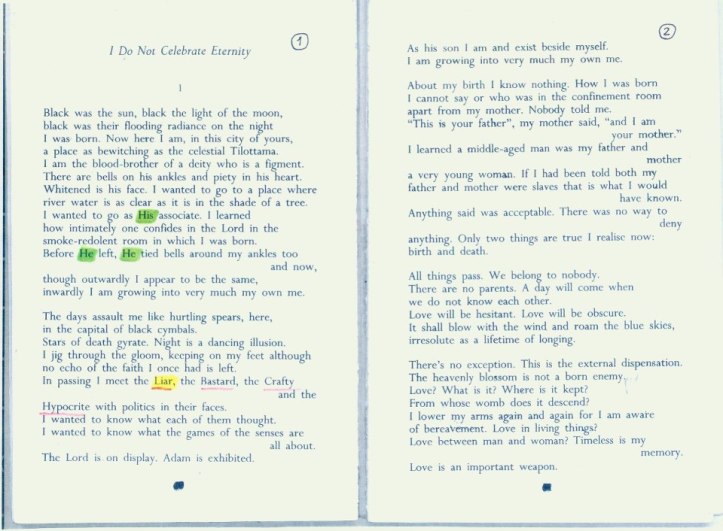 I Do Not Celebrate Eternity
1
1
Black was the sun, black the light of the moon,
black was their flooding radiance on the night
I was born. Now here I am, in this city of yours,
a place as bewitching as the celestial Tilottama.
I am the blood-brother of a deity who is a figment.
There are bells on his ankles and piety in his heart.
Whitened is his face. I wanted to go to a place where
river water is as clear as it is in the shade of a tree.
I wanted to go as His associate. I learned
how intimately one confides in the Lord in the
smoke-redolent room in which I was born.
Before He left, He tied bells around my ankles too
and now,
though outwardly I appear to be the same,
inwardly I am growing into very much my own me.
The days assault me like hurtling spears, here,
in the capital of black cymbals.
Stars of death gyrate. Night is a dancing illusion.
I jig through the gloom, keeping on my feet although
no echo of the faith I once had is left.
In passing I meet the Liar, the Bastard, the Crafty
and the
Hypocrite with politics in their faces.
I wanted to know what each of them thought.
I wanted to know what the games of the senses are
all about.
The Lord is on display. Adam is exhibited.
2
As his son I am and exist beside myself.
I am growing into very much my own me.
About my birth I know nothing. How I was born
I cannot say or who was in the confinement room
apart from my mother. Nobody told me.
"This is your father", my mother said, "and I am
your mother."
I learned a middle-aged man was my father and
mother
a very young woman. If I had been told both my
father and mother were slaves that is what I would
have known.
Anything said was acceptable. There was no way to
deny
anything. Only two things are true I realise now:
birth and death.
All things pass. We belong to nobody.
There are no parents. A day will come when
we do not know each other.
Love will be hesitant. Love will be obscure.
It shall blow with the wind and roam the blue skies,
irresolute as a lifetime of longing.
There's no exception. This is the external dispensation.
The heavenly blossom is not a born enemy.
Love? What is it? Where is it kept?
From whose womb does it descend?
I lower my arms again and again for I am aware
of bereavement. Love in living things?
Love between man and woman? Timeless is my
memory.
Love is an important weapon.